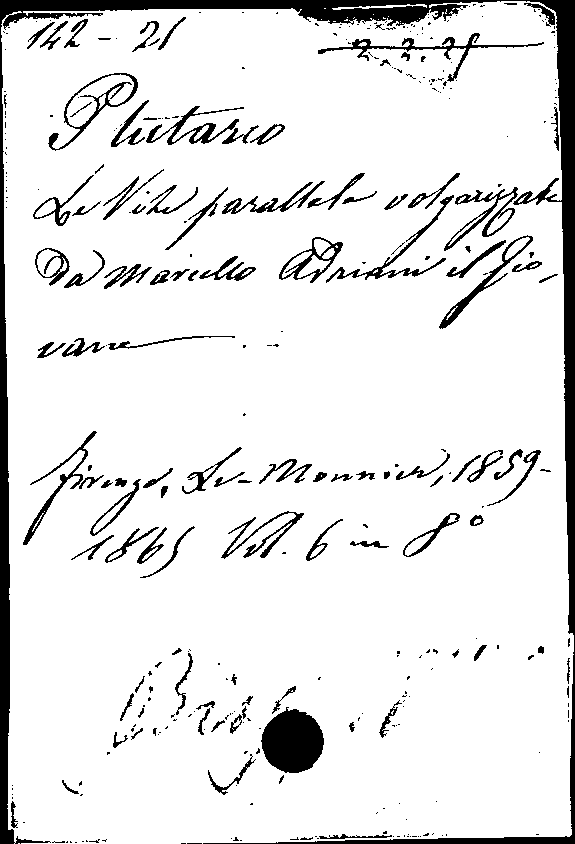 142 - 21
2.2.25
Plutarco
Le Vite parallele volgarizzate
Da Marcello Adriani il Gio-
vane
Firenze, Le-Monnier, 1859-
1865 Vol. 6 in 8º